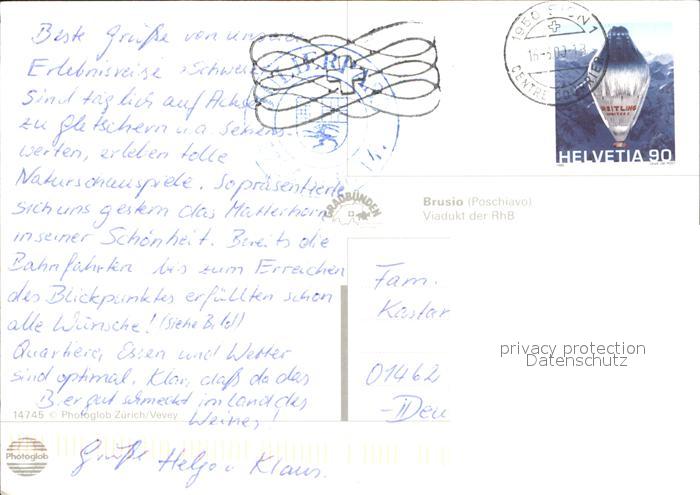 Beste Grüße von unserer
Erlebnisreise "Schweiz
Sind täglich auf Achse
zu Gletschern u.a. Sehens-
werten, erleben tolle
Naturschauspiele. So präsentierte
sich uns gestern das Matterhorn
in seiner Schönheit. Bereits die
Bahnfahrten bis zum Erreichen
des Blickpunktes erfüllten schon
alle Wünsche! (siehe Bild)
Quartiere, Essen und Wetter
sind optimal. Klar, daß da das
Bier gut schmeckt im Land des
Weines!
Grüße Helga u. Klaus.
14745 © Photoglob Zürich/Vevey
Photoglob
1950 SION 1
CENTRE
BREITLING
ORBITER 3
HELVETIA 90
GRAUBÜNDEN
Brusio (Poschiavo)
Viadukt der RhB
Fam.
Kastar
01462
-Deu
privacy protection
Datenschutz